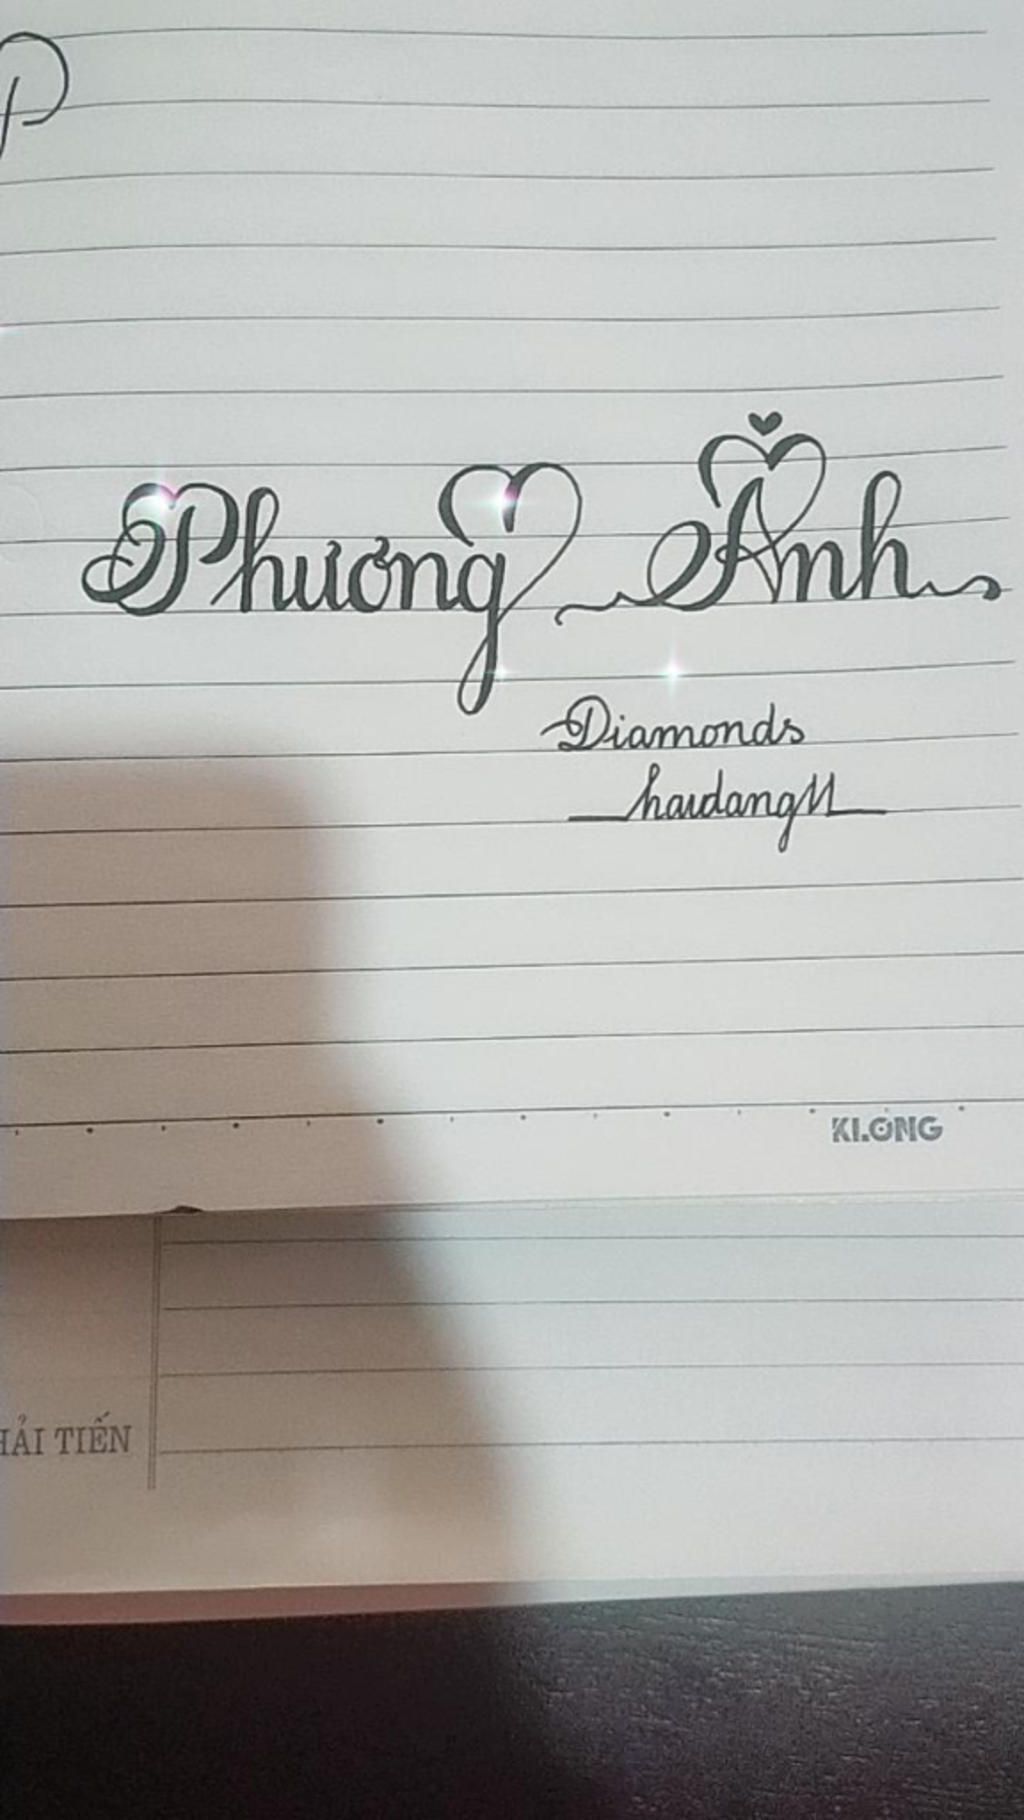 P
Phương Ánh
Diamonds
haidang11
KLONG
HẢI TIẾN